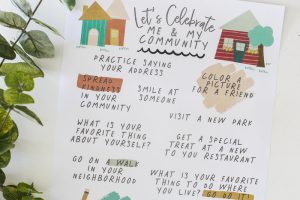 Let's Celebrate
ME & MY
COMMUNITY
PRACTICE SAYING
YOUR ADDRESS
SPREAD
KINDNESS
IN YOUR
COMMUNITY
SMILE AT
SOMEONE
COLOR A
PICTURE
FOR A FRIEND
VISIT A NEW PARK
WHAT IS YOUR
FAVORITE THING
ABOUT YOURSELF?
GET A SPECIAL
TREAT AT A NEW
TO YOU RESTAURANT
GO ON A WALK
IN YOUR
NEIGHBORHOOD
WHAT IS YOUR FAVORITE
THING TO DO WHERE
YOU LIVE? GO DO IT!